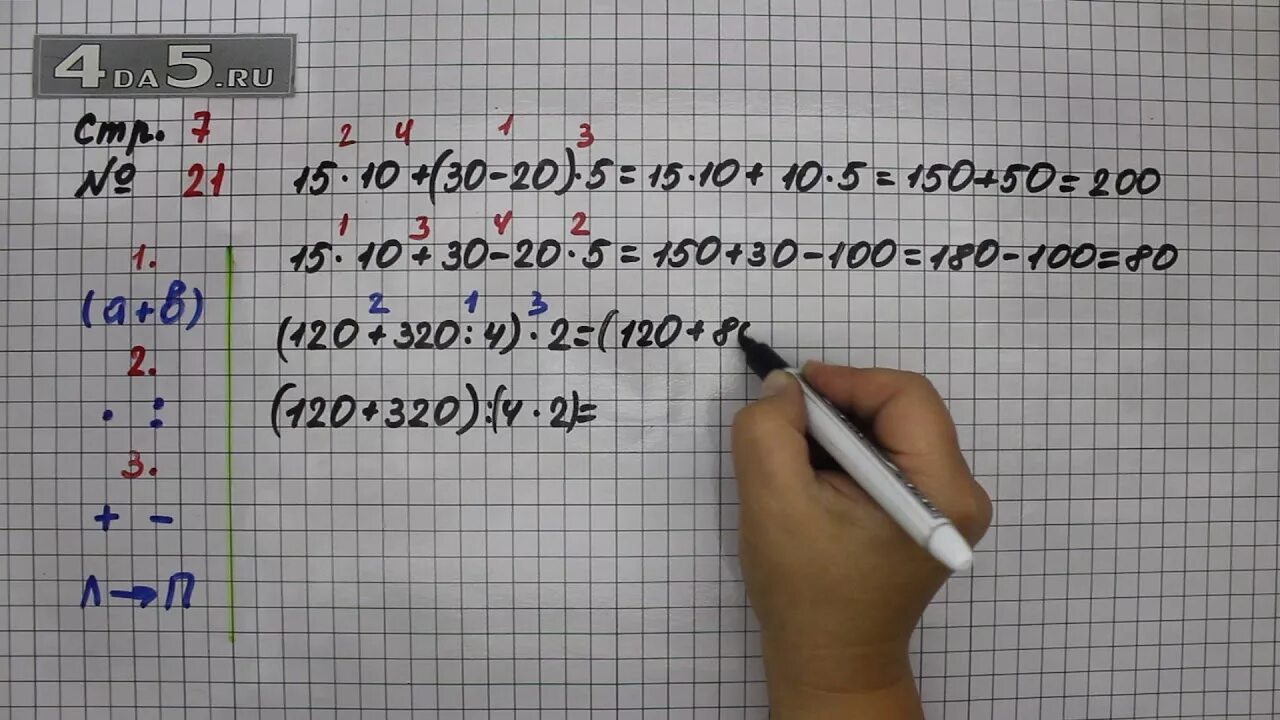 4DA5.RU
Стр. 7
№ 21
2 4 1 3
15·10+(30-20)·5=15·10+10·5=150+50=200
1 3 4 2
15·10+30-20·5=150+30-100=180-100=80
2 1 3
(120+320:4)·2=(120+80
(120+320):(4·2)=
1.
(а+в)
2.
· :
3.
+ -
Л→П